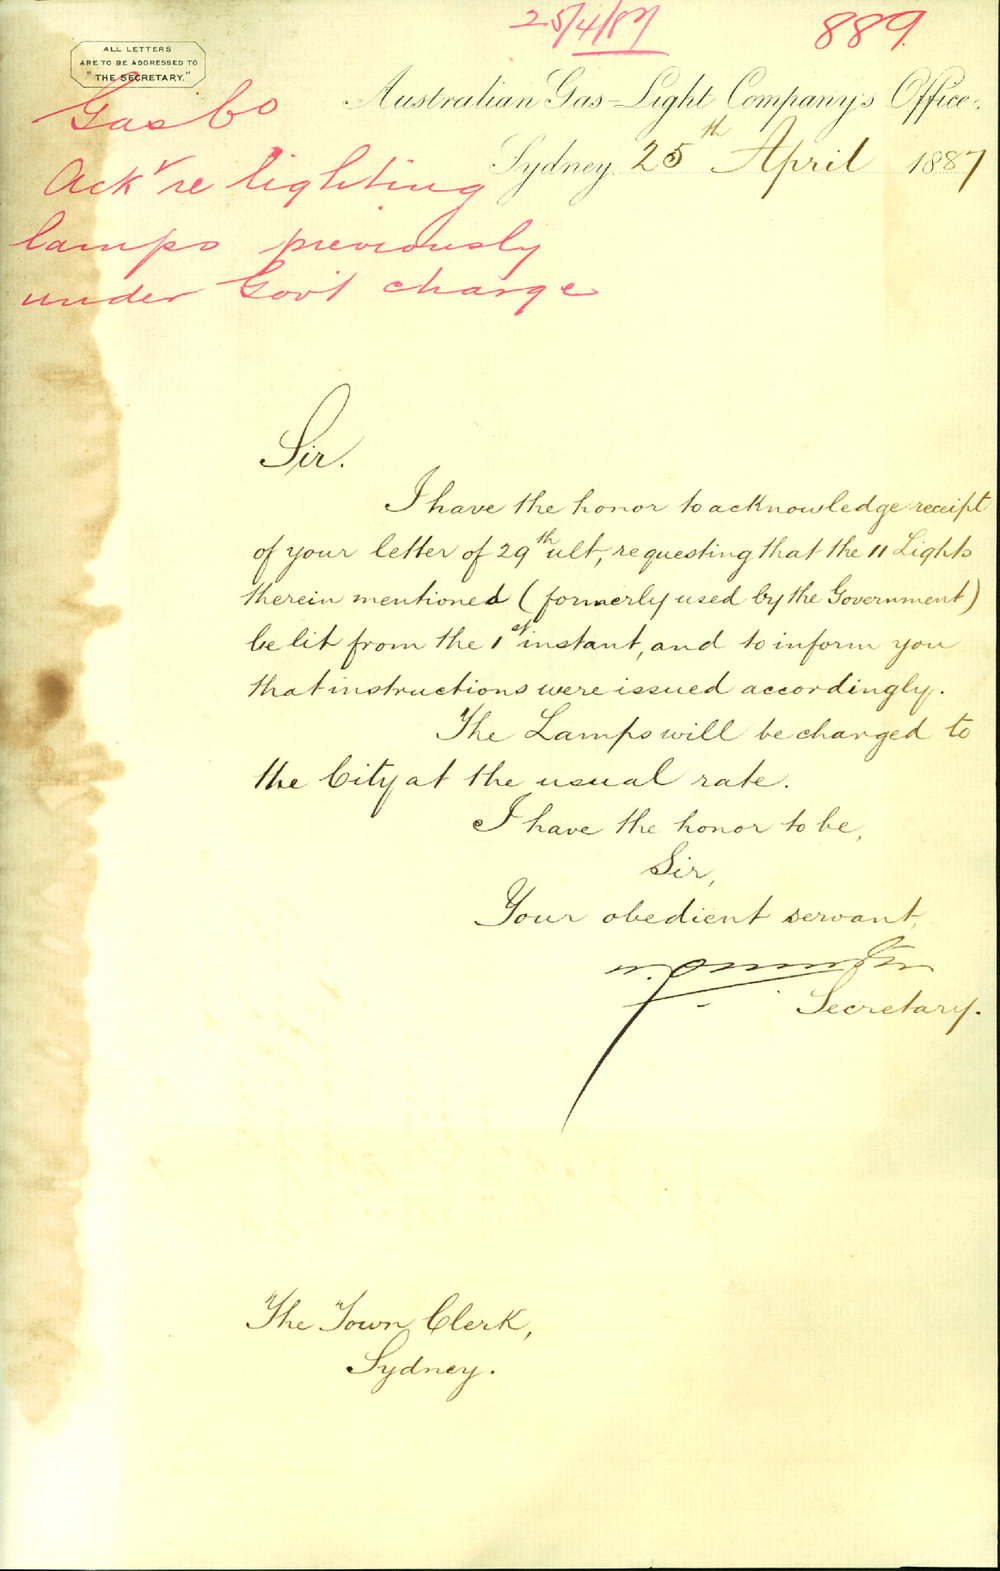 25/4/87
889.
ALL LETTERS
ARE TO BE ADDRESSED TO
"THE SECRETARY."
Gas Co
Ack'r re lighting
lamps previously
under Gov't charge
Australian Gas-Light Company's Office.
Sydney 25th April 1887
Sir.
I have the honor to acknowledge receipt
of your letter of 29th ult, requesting that the 11 Lights
therein mentioned (formerly used by the Government)
be lit from the 1st instant, and to inform you
that instructions were issued accordingly.
The Lamps will be charged to
the City at the usual rate.
I have the honor to be,
Sir,
Your obedient servant,
Secretary.
The Town Clerk,
Sydney.